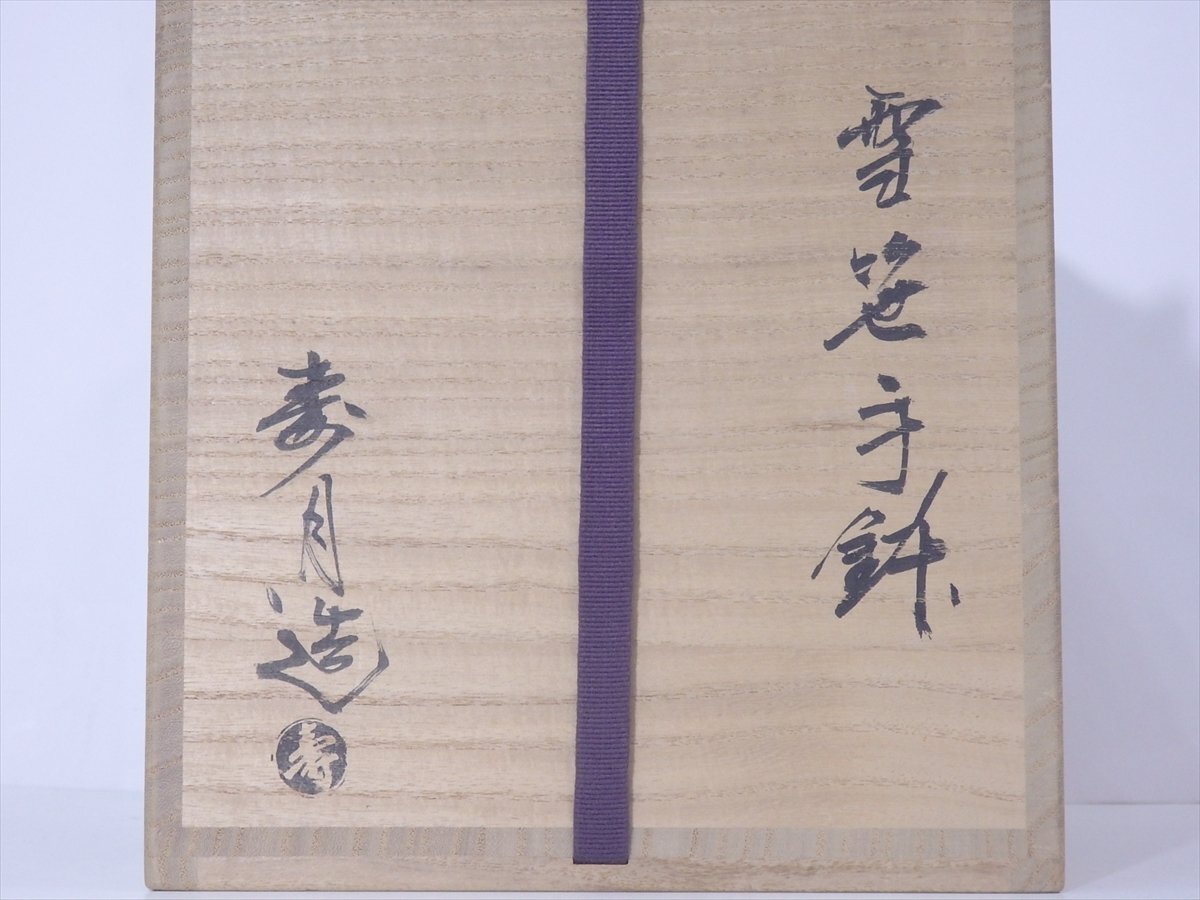 雪笹手鉢
寿月造
寿